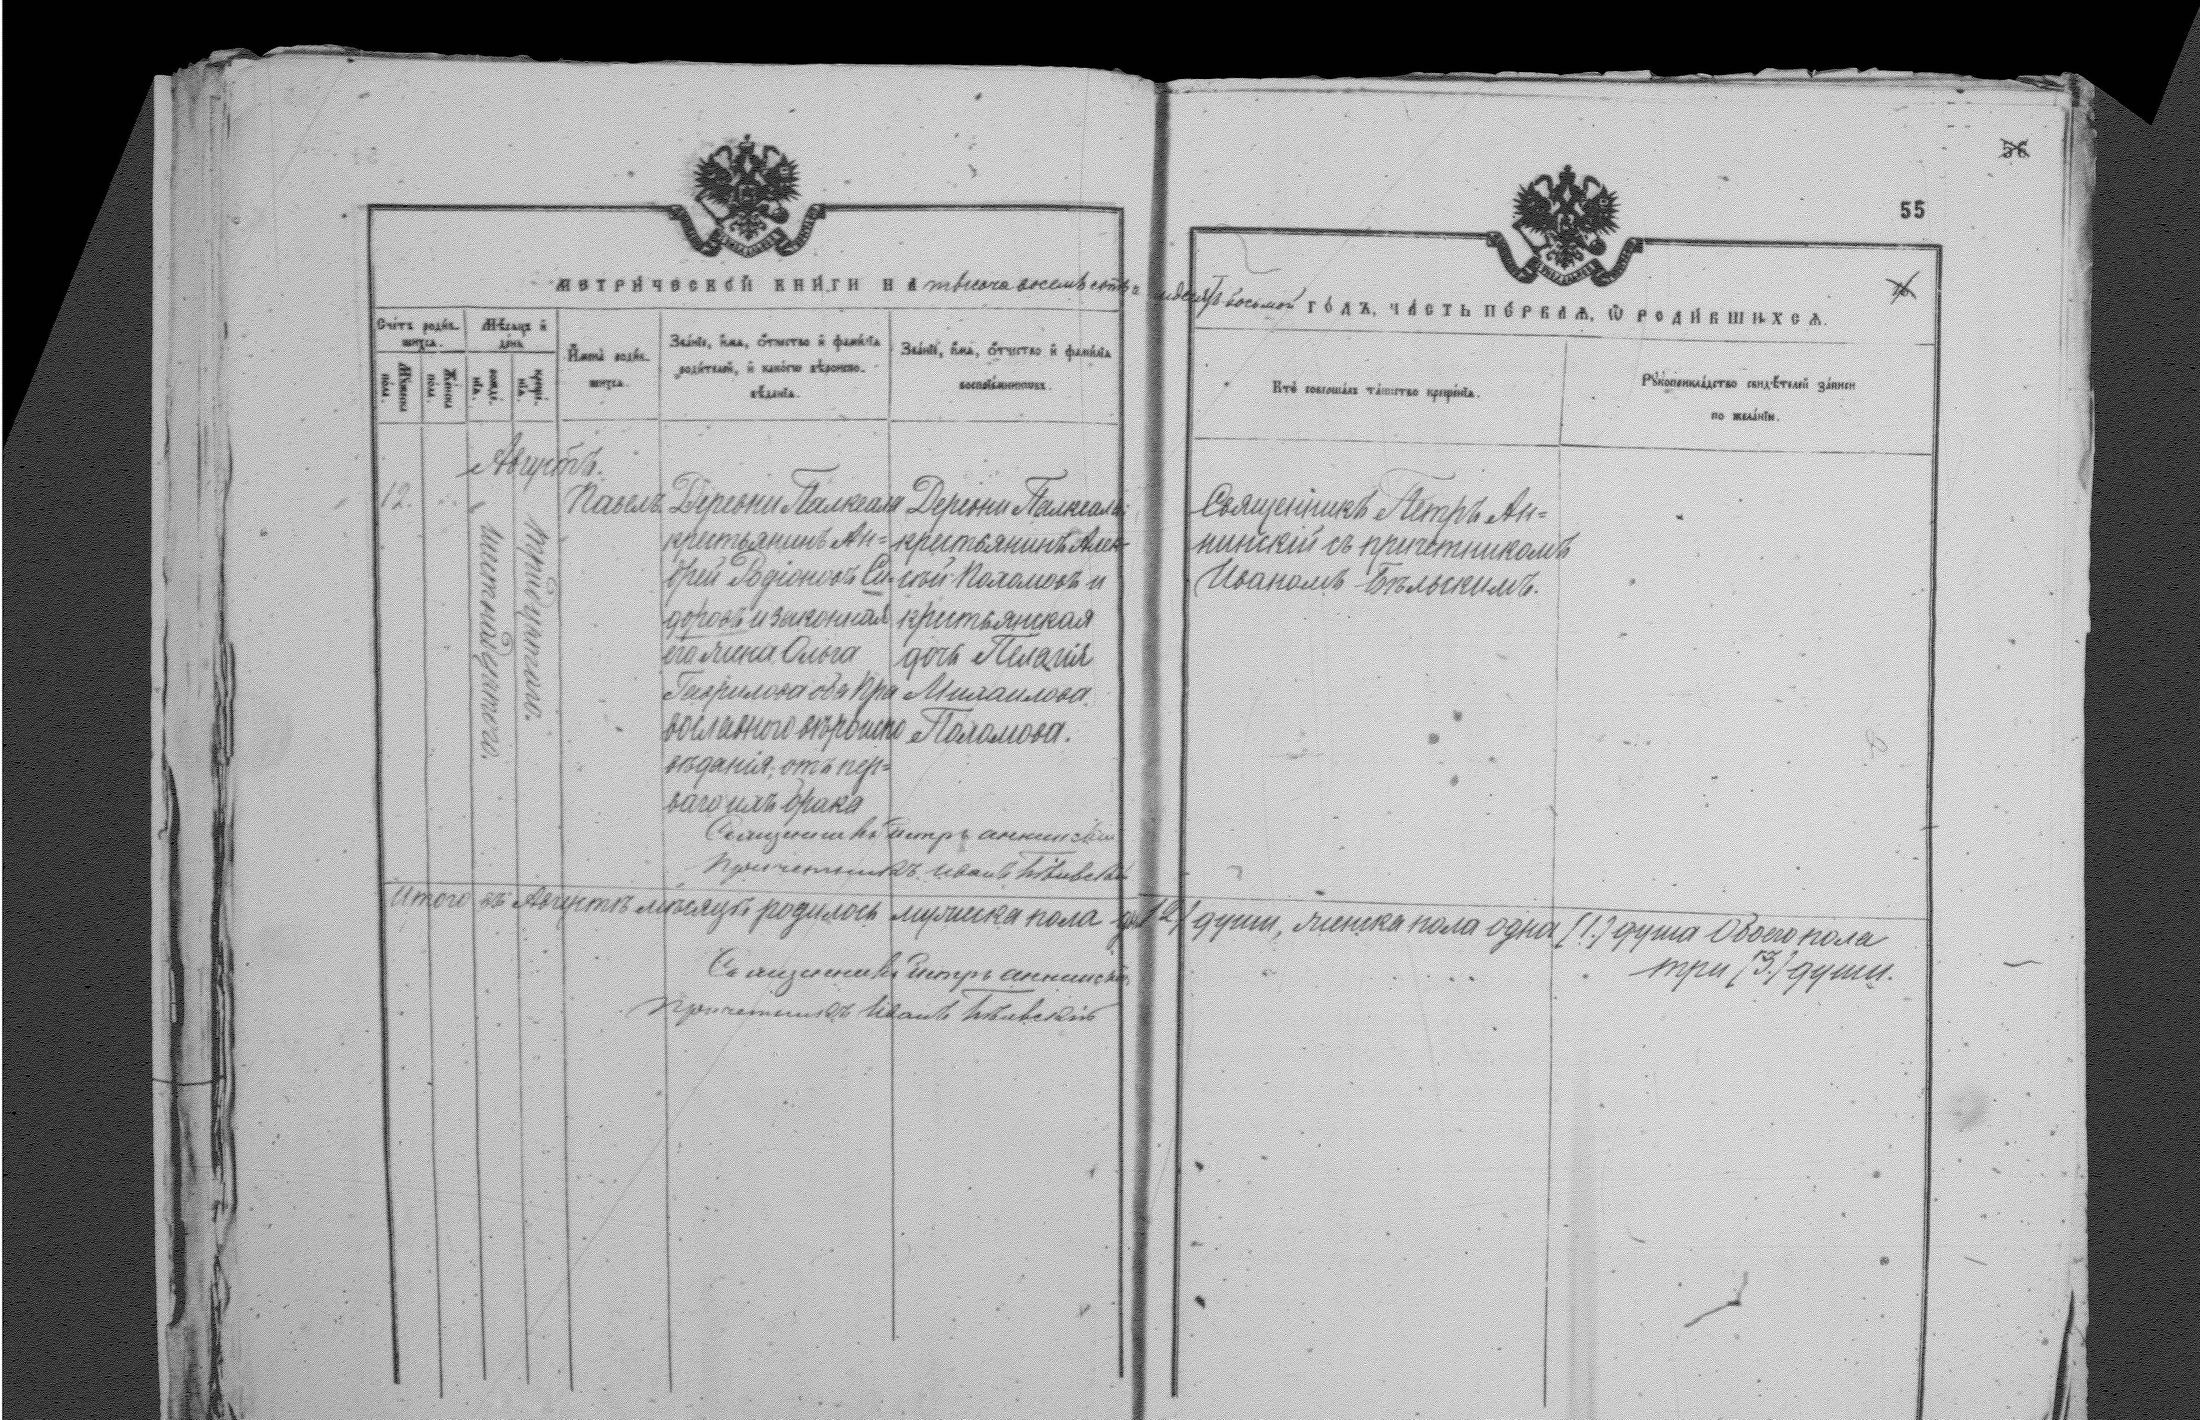 56
55
МЕТРИЧЕСКОЙ КНИГИ НА тысяча восемьсотъ восьмой ГОДЪ, ЧАСТЬ ПЕРВАЯ, Ѡ РОДИВШИХСЯ.
Счетъ родившихся.
Мѣсяцъ и день
Мужеска пола.
Женска пола.
рожденія.
крещенія.
Имена родившихся.
Званіе, имя, отчество и фамилія родителей, и какого вѣроисповѣданія.
Званіе, имя, отчество и фамилія воспріемниковъ.
Кто совершалъ таинство крещенія.
Рукоприкладство свидѣтелей записи по желанію.
Августъ.
12.
тридцатаго.
Павелъ
Деревни Палкеала
крестьянинъ Ан=
дрей Родіоновъ Си-
доровъ и законная
его жена Ольга
Гаврилова оба пра
вославнаго вѣроиспо
вѣданія; отъ пер=
ваго ихъ брака
Деревни Палкеалы
крестьянинъ Алек-
сѣй Пахомовъ и
крестьянская
дочь Пелагія
Михаилова
Пахомова.
Священникъ Петръ Ан=
нинскій съ причетникомъ
Иваномъ Бѣльскимъ.
Священникъ Петръ Аннинскій
Причетникъ Иванъ Бѣльскій
Итого въ Августѣ мѣсяцѣ родилось мужеска пола два (2) души, женска пола одна (1.) душа обоего пола
три (3.) души.
Священникъ Петръ Аннинскій
Причетникъ Иванъ Бѣльскій